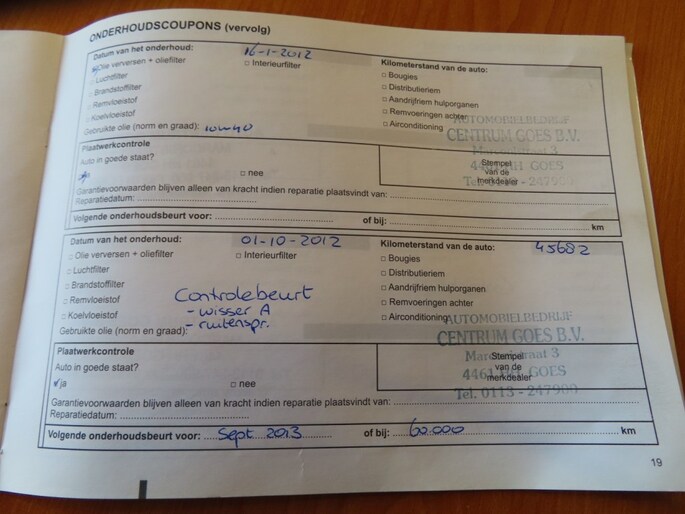 ONDERHOUDSCOUPONS (vervolg)
Datum van het onderhoud: 16-1-2012 Kilometerstand van de auto:
Olie verversen + oliefilter Interieurfilter Bougies
Luchtfilter Distributieriem
Brandstoffilter Aandrijfriem hulporganen
Remvloeistof Remvoeringen achter
Koelvloeistof Airconditioning
Gebruikte olie (norm en graad): 10W40
AUTOMOBIELBEDRIJF
CENTRUM GOES B.V.
Plaatwerkcontrole
Auto in goede staat?
ja nee
Stempel
van de
merkdealer
straat 3
GOES
Tel. 0113 - 247980
Garantievoorwaarden blijven alleen van kracht indien reparatie plaatsvindt van:
Reparatiedatum:
Volgende onderhoudsbeurt voor: of bij: km
Datum van het onderhoud: 01-10-2012 Kilometerstand van de auto: 45682
Olie verversen + oliefilter Interieurfilter Bougies
Luchtfilter Distributieriem
Brandstoffilter Aandrijfriem hulporganen
Remvloeistof Remvoeringen achter
Koelvloeistof Airconditioning
Controlebeurt
- wisser A
- ruitenspr.
Gebruikte olie (norm en graad):
AUTOMOBIELBEDRIJF
CENTRUM GOES B.V.
Plaatwerkcontrole
Auto in goede staat?
ja nee
Stempel
van de
merkdealer
straat 3
4461 GOES
Tel. 0113 - 247980
Garantievoorwaarden blijven alleen van kracht indien reparatie plaatsvindt van:
Reparatiedatum:
Volgende onderhoudsbeurt voor: Sept 2013 of bij: 60.000 km
19